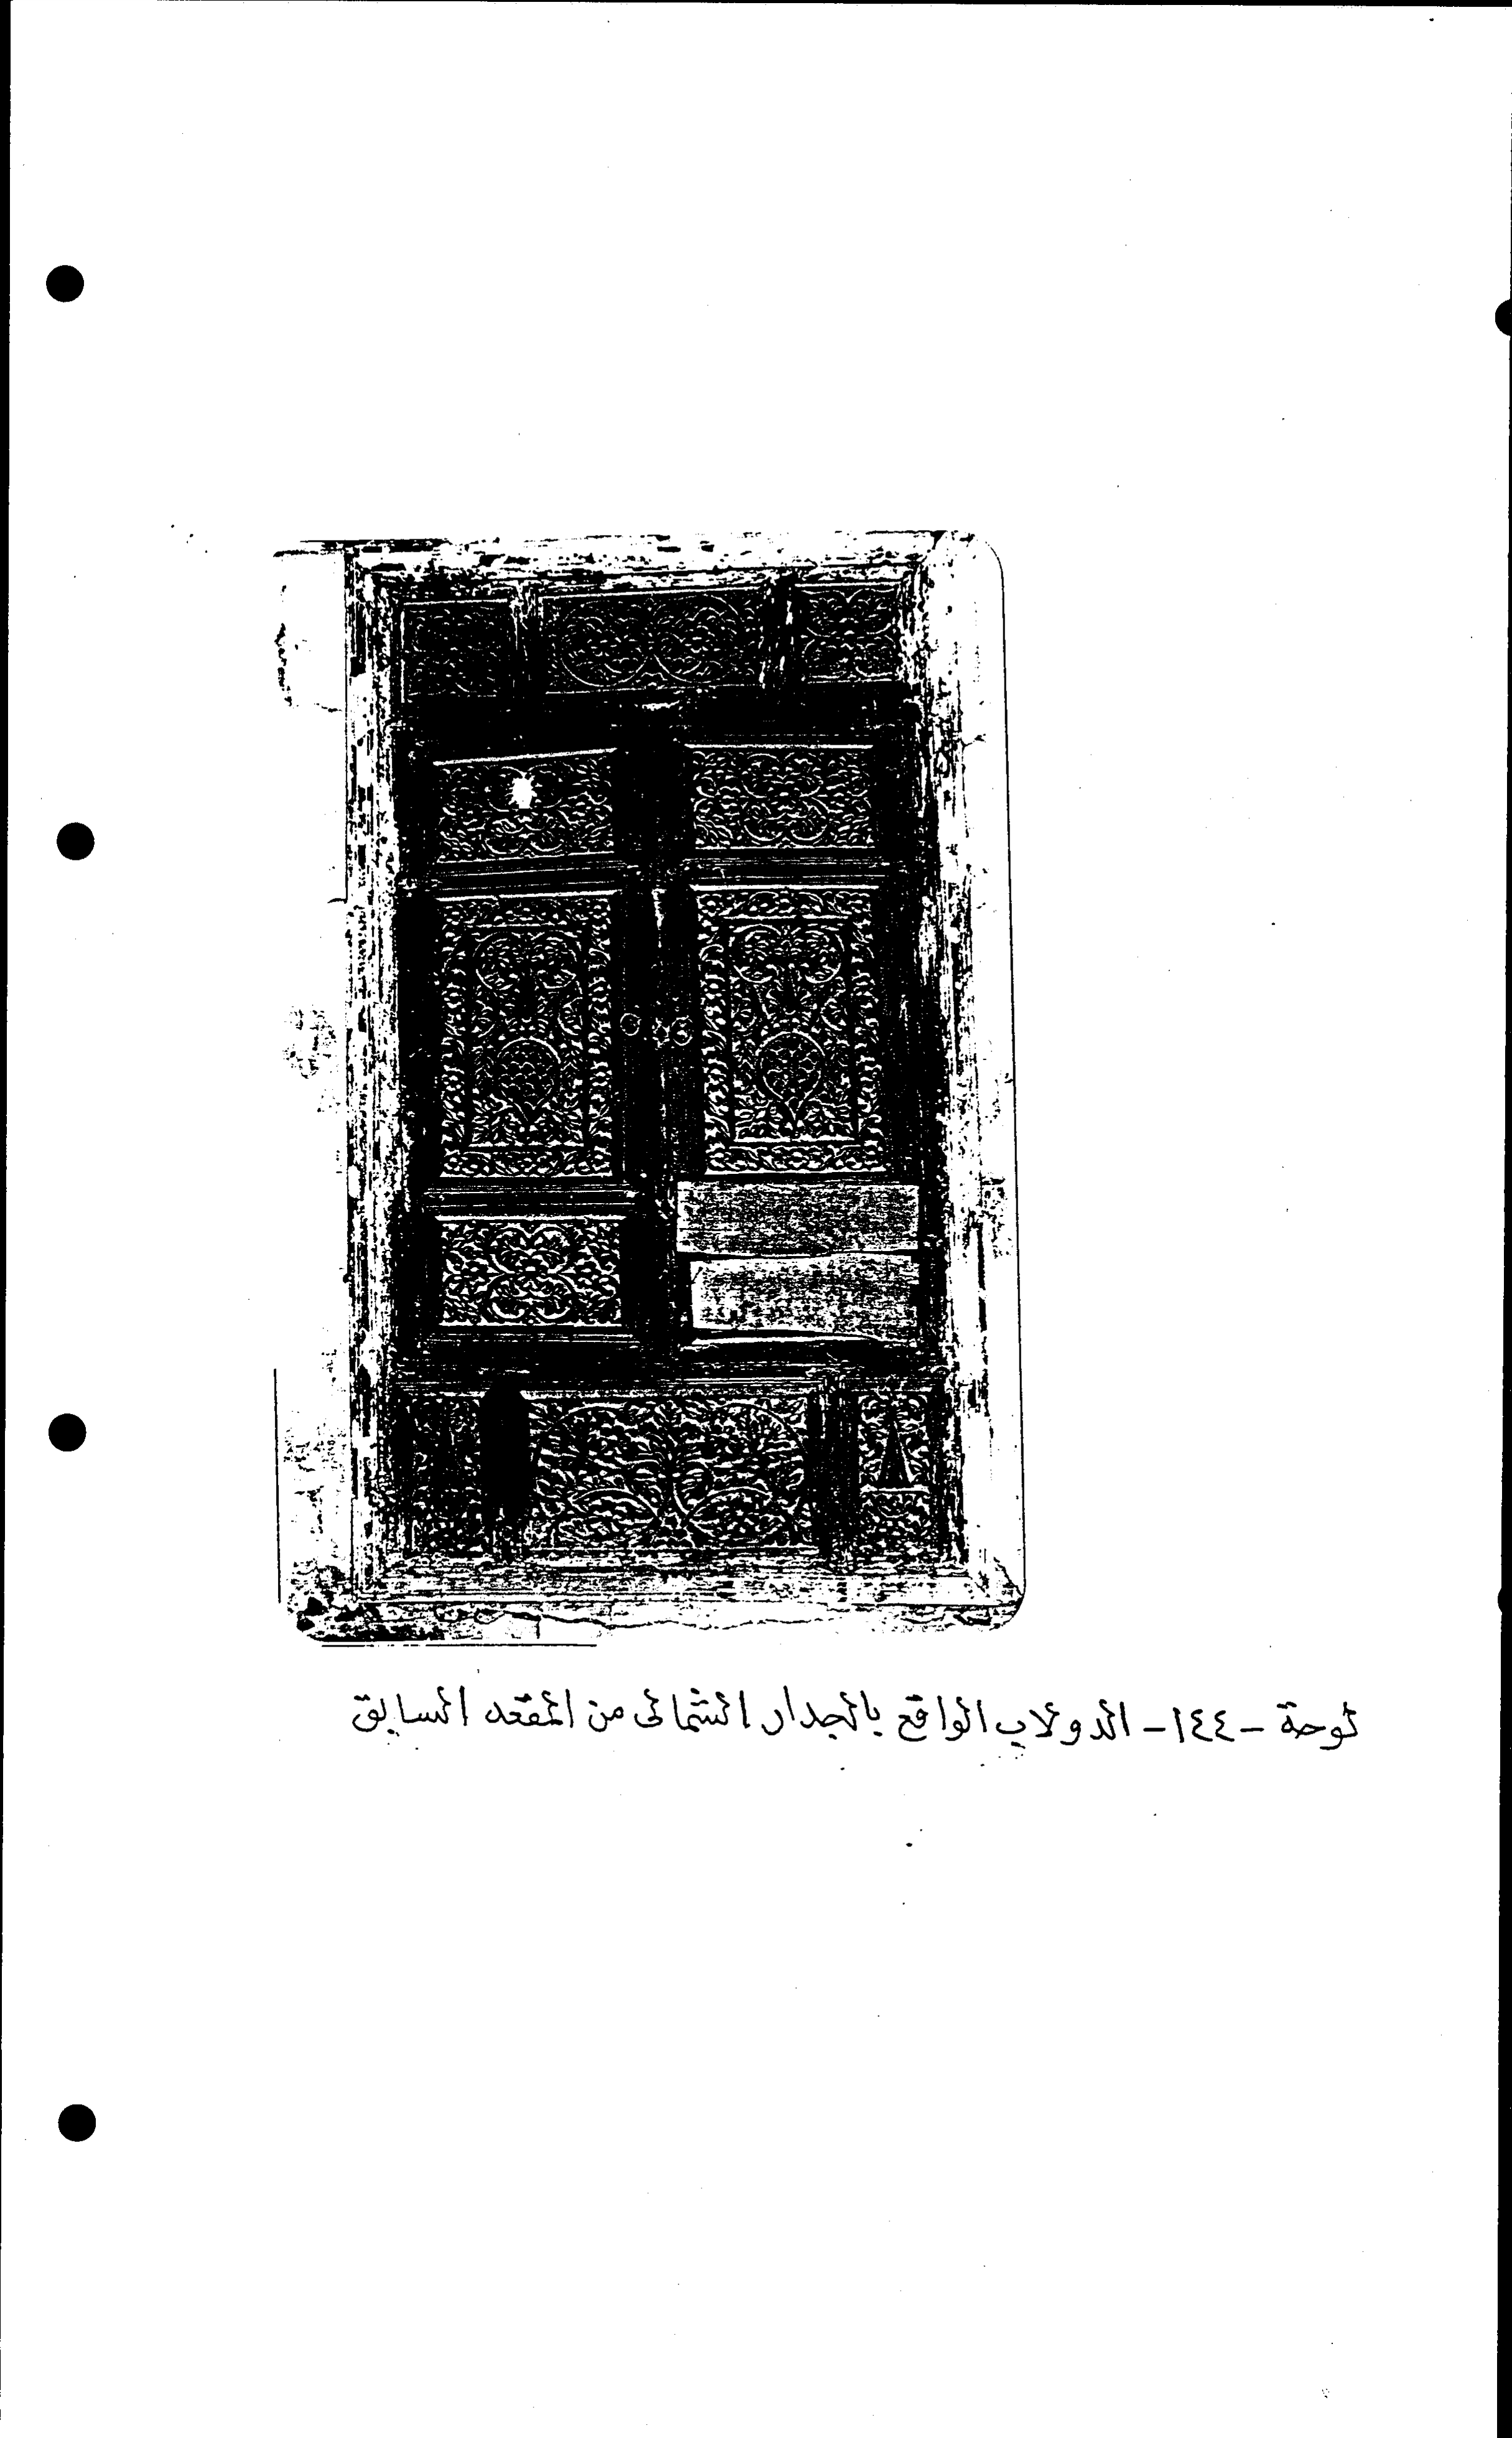 لوحة - ١٤٤ - الدولاب الواقع بالجدار الشمالى من المقعد السابق